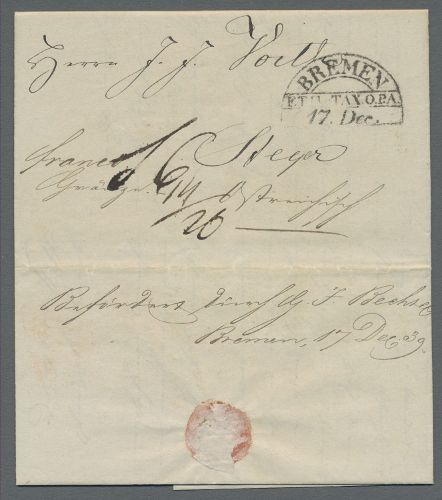 Herrn J. J. Voith
BREMEN
F.TH. TAX.O.P.A.
17. Dec.
franco Steyr
Gränze Östreichisch
26
Befördert durch G. F. Bechtel
Bremen, 17 Dec 39.